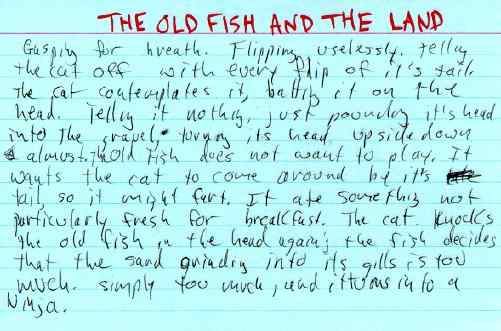 THE OLD FISH AND THE LAND
Gasping for breath. Flipping uselessly. Telling
the cat off with every flip of it's tail.
The cat contemplates it, batting it on the
head. Telling it nothing, just pounding it's head
into the gravel, turning its head upside down
almost. The Old Fish does not want to play. It
wants the cat to come around by it's
tail, so it might fart. It ate something not
particularly fresh for breakfast. The cat knocks
the old fish in the head again; the fish decides
that the sand grinding into its gills is too
much. simply too much, and it turns into a
Ninja.